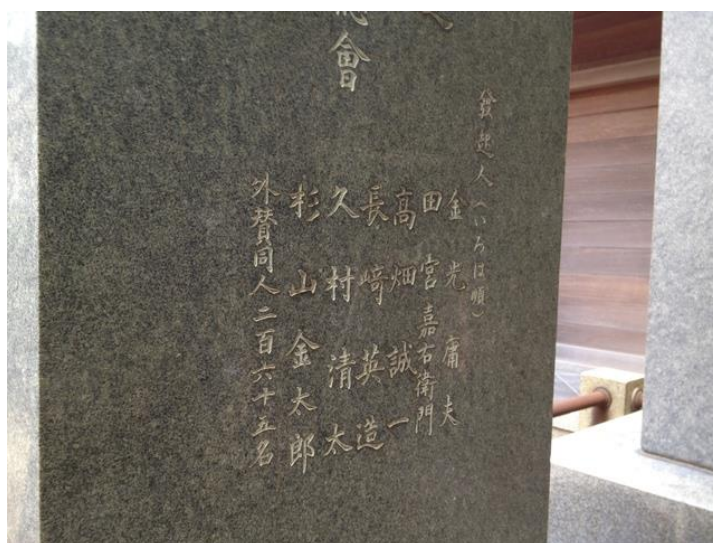 會
發起人(いろは順)
金光庸夫
田宮嘉右衛門
高畑誠一
長﨑英造
久村清太
杉山金太郎
外賛同人二百六十五名